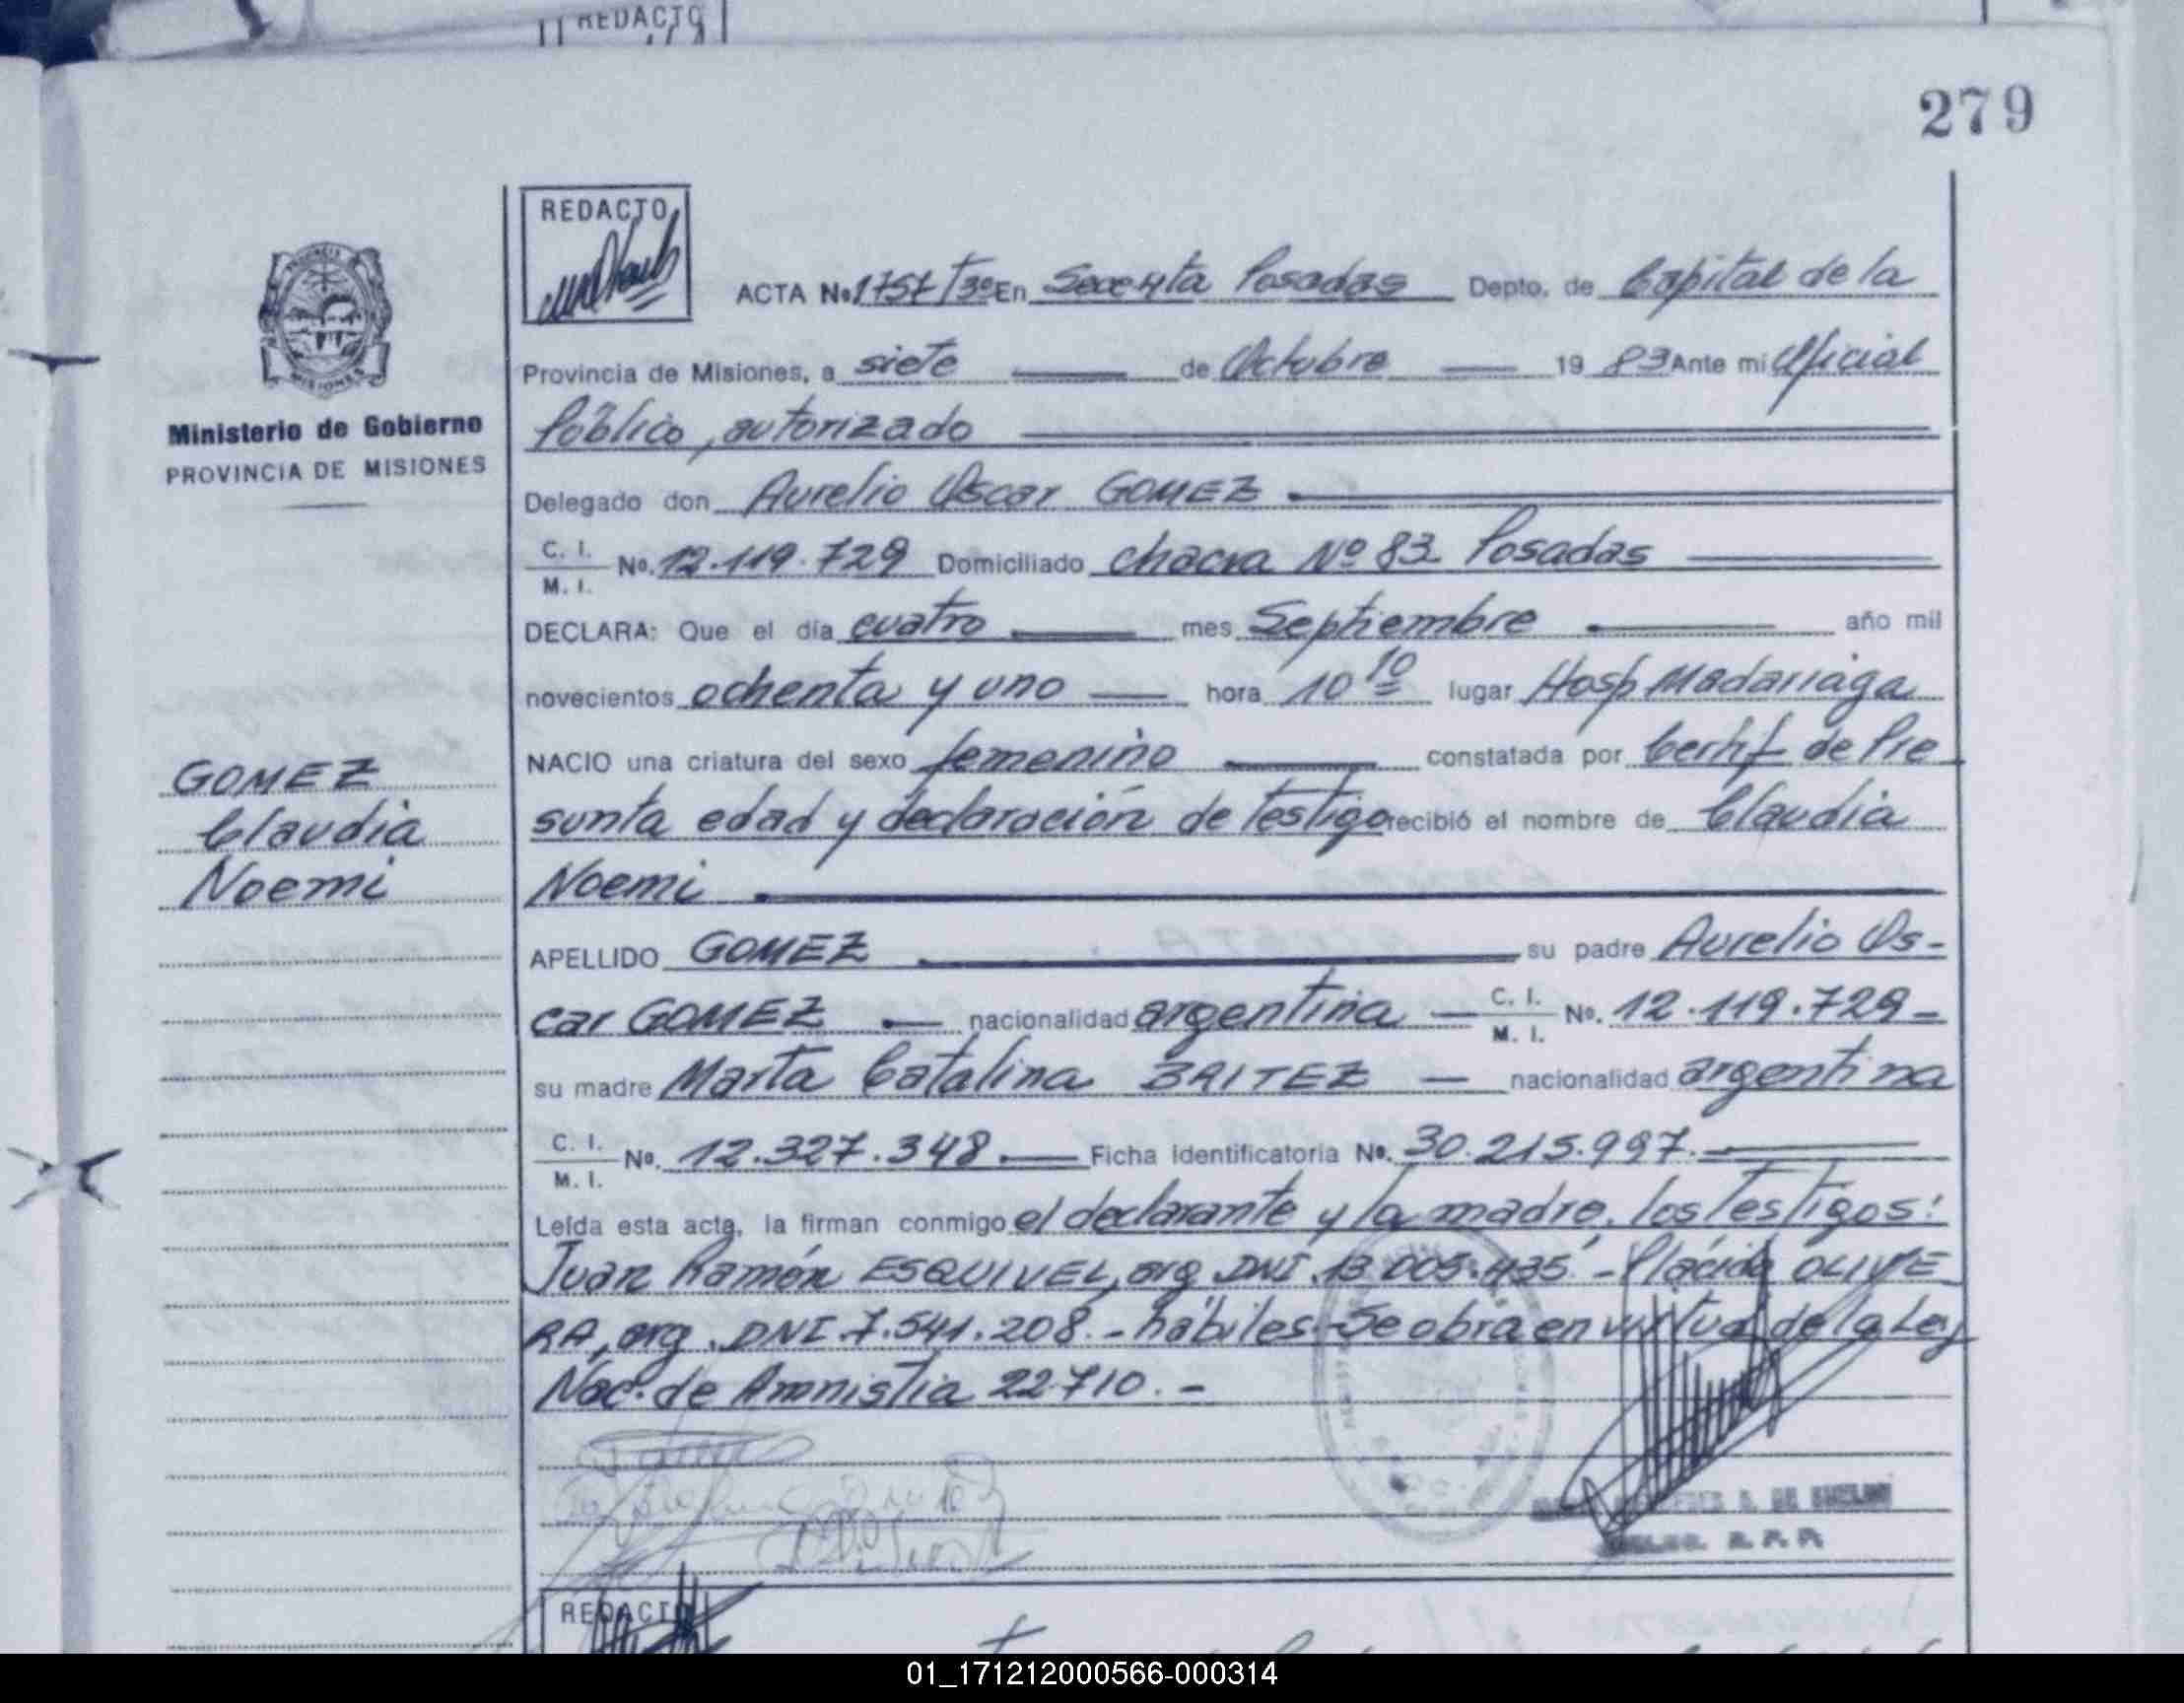 REDACTO
279
REDACTO
ACTA No 1757 T3º En Sexenta Posadas Depto. de Capital de la
Provincia de Misiones, a siete de Octubre 19 83 Ante mi Oficial
Público, autorizado
Ministerio de Gobierno
PROVINCIA DE MISIONES
Delegado don Aurelio Oscar GOMEZ
C. I.
M. I. No. 12.119.729 Domiciliado chacra Nº 83 Posadas
DECLARA: Que el día cuatro mes Septiembre año mil
novecientos ochenta y uno hora 10 10 lugar Hosp Madariaga
NACIO una criatura del sexo femenino constatada por Certif de Pre
sunta edad y declaración de testigo recibió el nombre de Claudia
Noemi
GOMEZ
Claudia
Noemi
APELLIDO GOMEZ su padre Aurelio Os-
car GOMEZ nacionalidad argentina C. I. M. I. No. 12.119.729
su madre Marta Catalina BAITEZ nacionalidad argentina
C. I.
M. I. No. 12.327.348. Ficha identificatoria No. 30.215.997.
Leída esta acta, la firman conmigo el declarante y la madre, los testigos:
Juan Ramón ESQUIVEL, arg DNI 13.005.435 - Plácido OLIVE
RA, arg. DNI 7.541.208. - hábiles - Se obra en virtud de la Ley
Nac. de Amnistia 22710. -
REDACTO
01_171212000566-000314